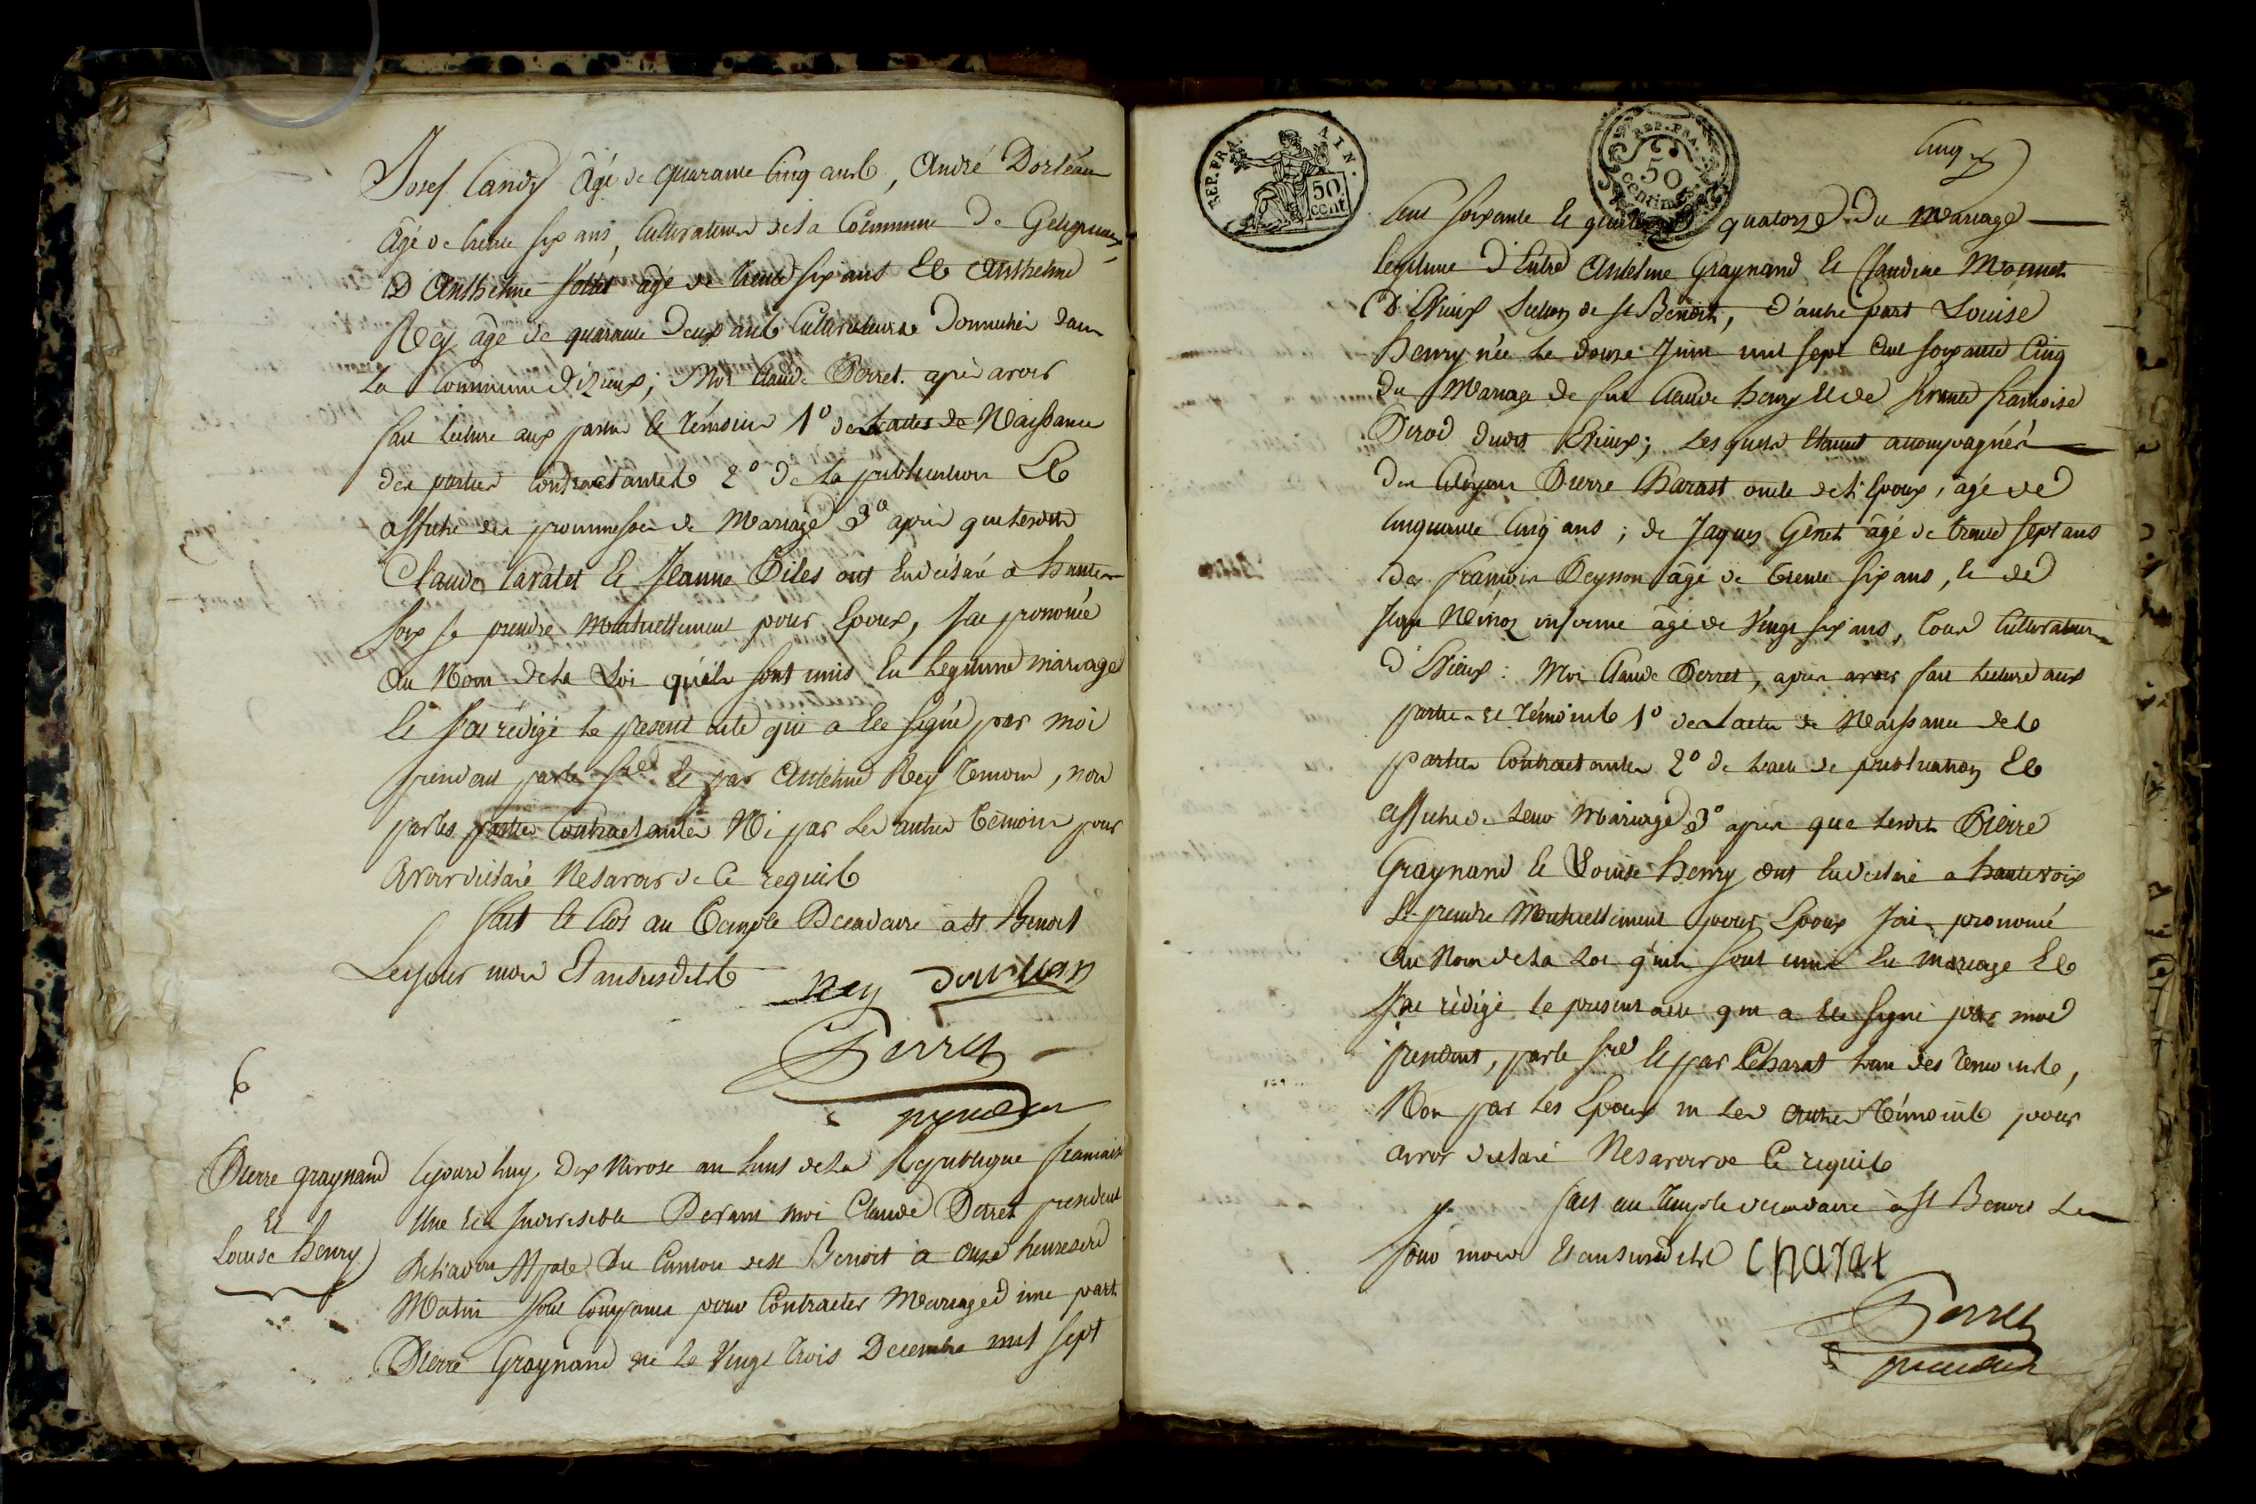 Josef Candy Âgé de quarante Cinq ans, André
Agé de trente six ans, Cultivateurs de la Commune de
D'Anthelme âgé de trente six ans Et Anthelme
Rey âgé de quarante deux ans Cultivateurs Domiciliés dans
La Commune D'izieux; Moi Claude Perret après avoir
fait lecture aux parties et témoins 1º des actes de Naissance
des parties Contractantes 2º De la publication Et
affiche des prommesses de Mariage 3º après que lesdits
Claude et Jeanne ont Eu déclaré a hautes
foix se prendre Mutuellement pour Epoux, J'ai prononcé
Au Nom de La Loi qu'ils sont unis En Légitime mariage
Et J'ai rédigé le présent acte qui a Eté signé par moi
président par le Sre et par Antelme Rey témoin, non
par les parties Contractantes Ni par Les autres témoins pour
Avoir déclaré Ne savoir de Ce requis
fait et Clos au Temple Décadaire à St Benoit
Les jour mois Et an susdits
Rey
Perret
président
6
Pierre graynand
Et
Louise henry
Cejourd'huy Dix Nivose an huit de La République francaise
Une Et Indivisible Devant moi Claude Perret président
De L'adon Mpale Du Canton de St Benoit à Onze heures de
Matin sont Comparus pour Contracter Mariage d'une part
Pierre Graynand né le Vingt trois Decembre mil sept
REP. FRA. AIN.
50 cent
REP. FRA.
50 centimes
Cinq
Cent soixante Et quatorze Du Mariage
légitime D'Entre Antelme Graynand Et Claudine
D'Izieux Section de St Benoit, D'autre part Louise
henry née Le douze Juin mil sept Cent soixante Cinq
Du Mariage de feu Claude henry Et de françoise
dudit Izieux; Les quels Etants accompagnés
Des Citoyens Pierre Charast oncle de L'Epoux, âgé de
Cinquante Cinq ans; de Jaques Genet âgé de trente sept ans
De françois Peysson âgé de trente six ans, Et de
âgé de Vingt six ans, tous Cultivateurs
d'Izieux: Moi Claude Perret, après avoir fait lecture aux
parties Et témoins 1º des actes de Naissance des
parties Contractantes 2º de L'acte de publication Et
affiche de Leur Mariage 3º après que Lesdits Pierre
Graynand Et Louise henry ont Eu déclaré a haute voix
Se prendre Mutuellement pour Epoux J'ai prononcé
Au Nom de La Loi qu'ils sont unis En Mariage Et
J'ai rédigé le présent acte qui a Eté signé par moi
président, par le Sre Et par Charat L'un des témoins,
Non par Les Epoux ni Les autres témoins pour
avoir déclaré Ne savoir de Ce requis
fait au Temple décadaire à St Benoit Les
jour mois Et an susdits Charat
Perret
président